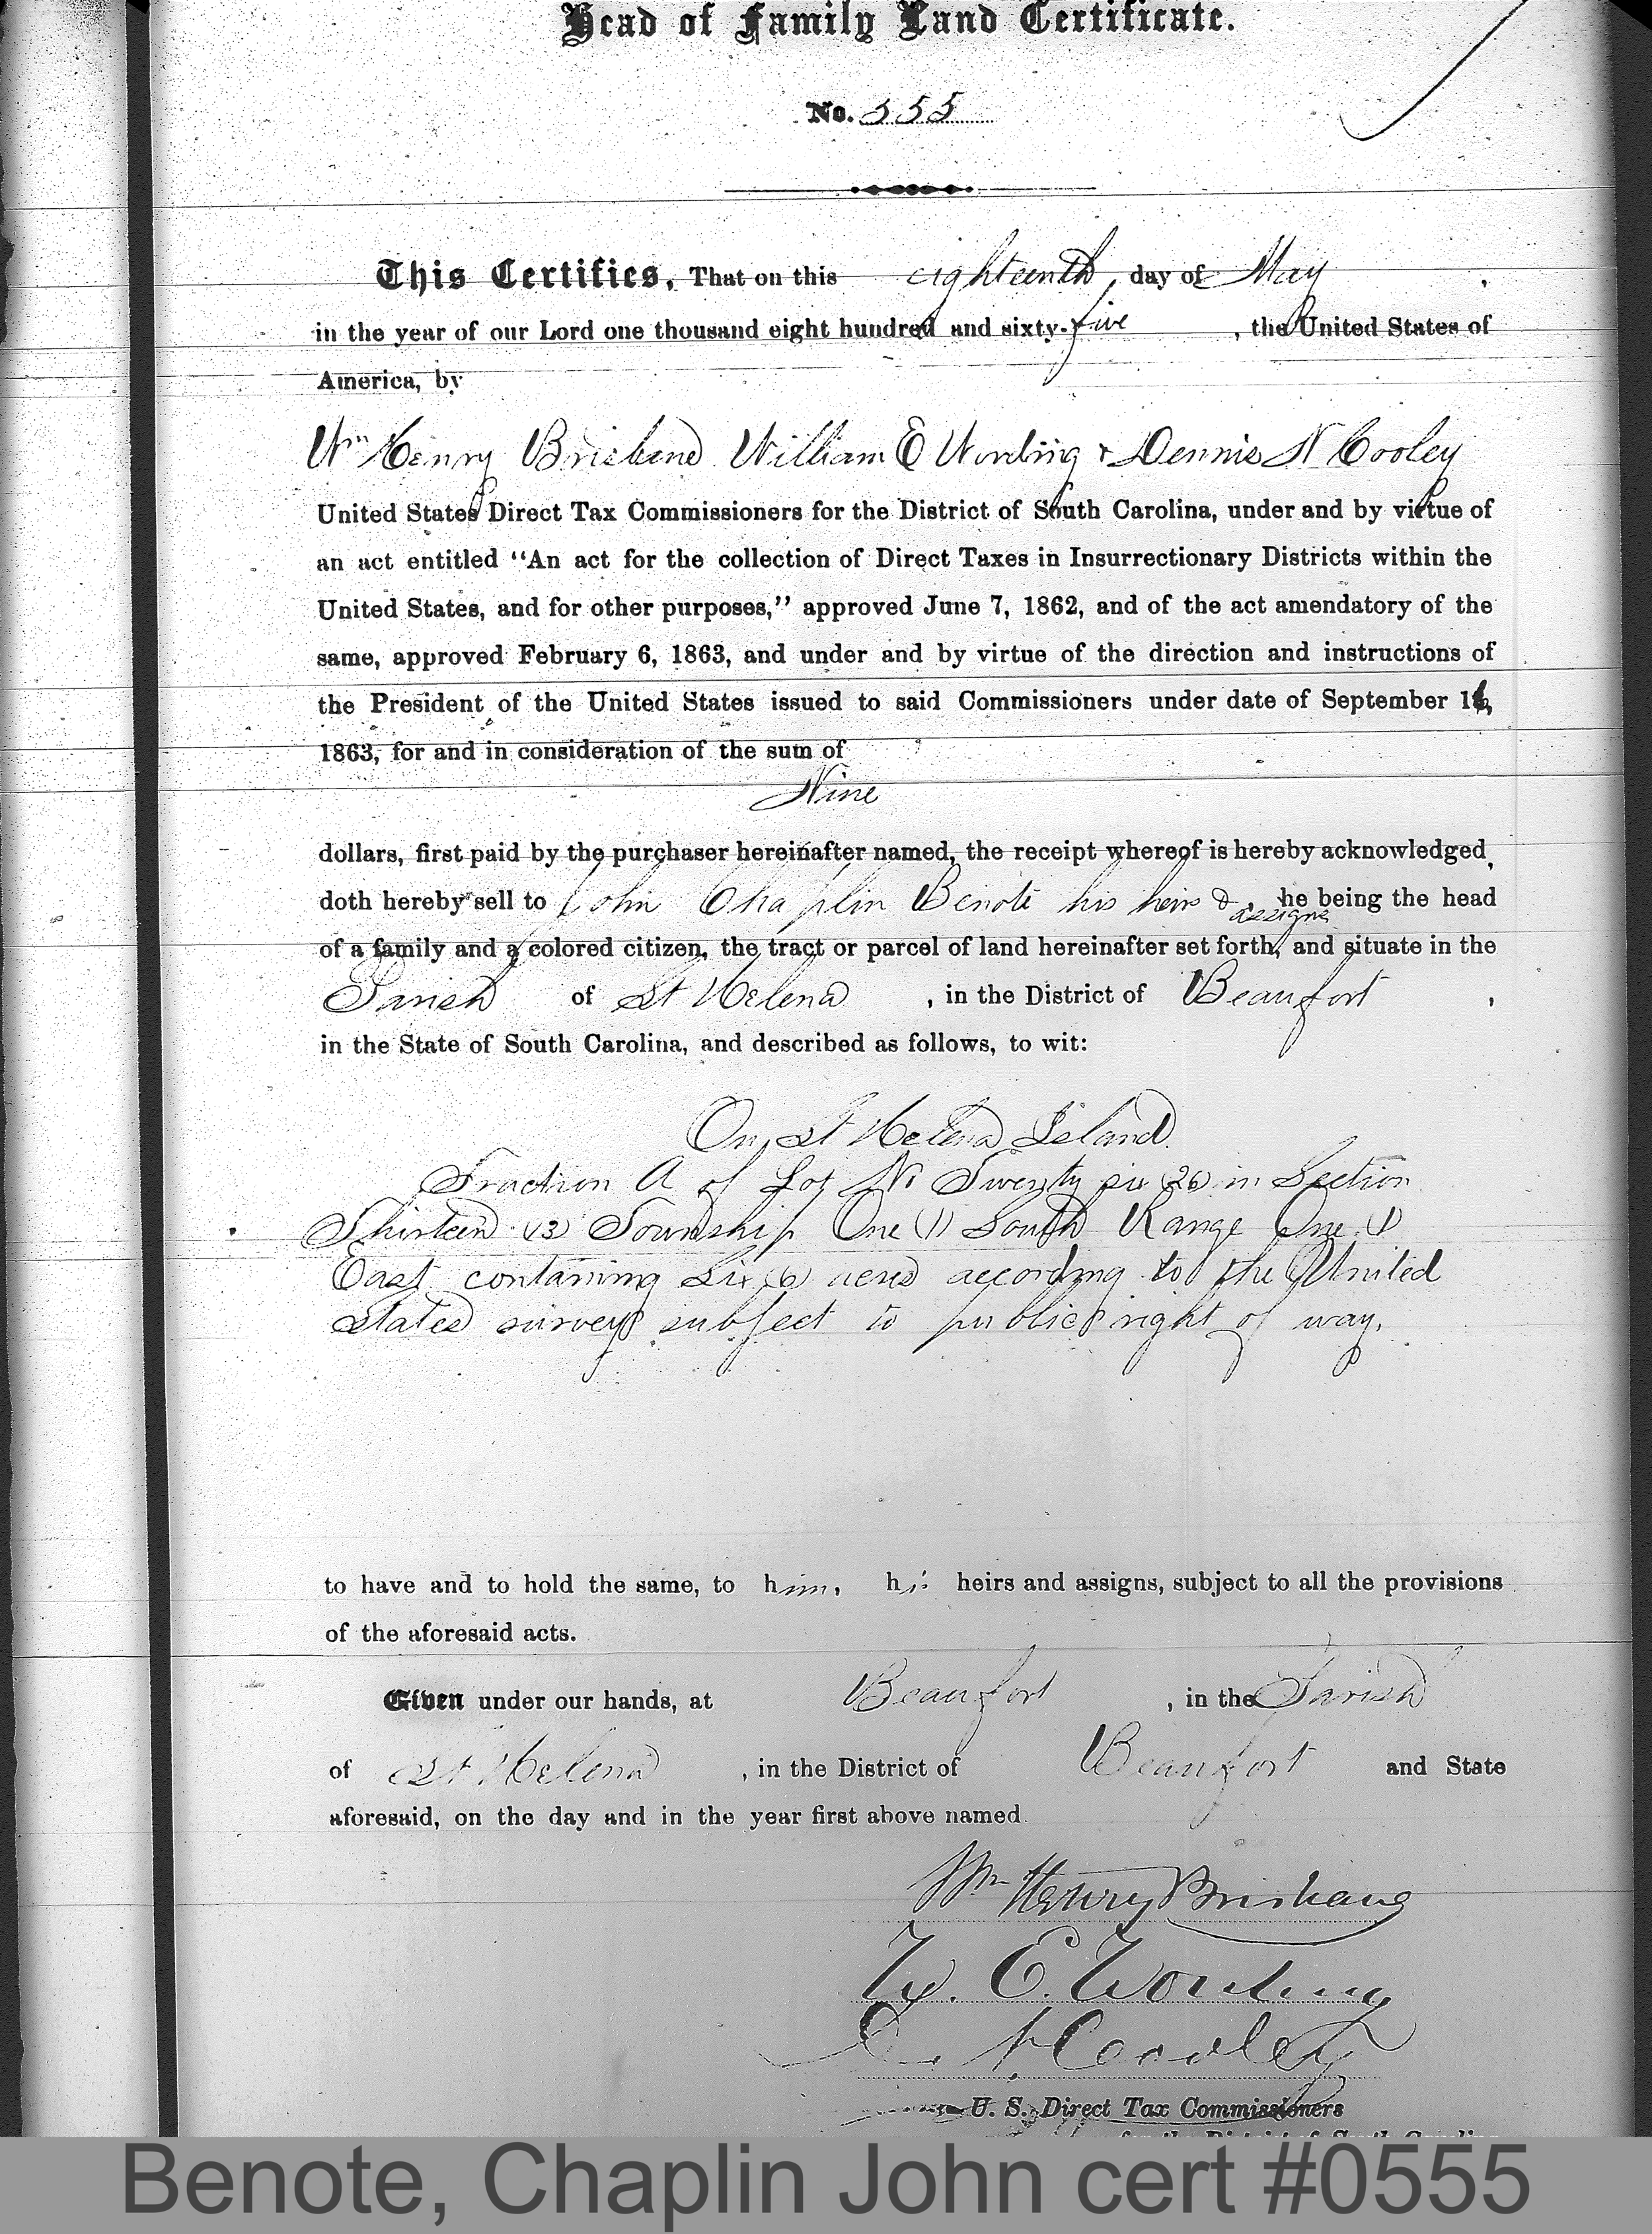 Head of Family Land Certificate.
No. 555
This Certifies, That on this eighteenth day of May,
in the year of our Lord one thousand eight hundred and sixty-five, the United States of
America, by
Wm Henry Brisbane William E Wording & Dennis N Cooley
United States Direct Tax Commissioners for the District of South Carolina, under and by virtue of
an act entitled “An act for the collection of Direct Taxes in Insurrectionary Districts within the
United States, and for other purposes,” approved June 7, 1862, and of the act amendatory of the
same, approved February 6, 1863, and under and by virtue of the direction and instructions of
the President of the United States issued to said Commissioners under date of September 16,
1863, for and in consideration of the sum of
Nine
dollars, first paid by the purchaser hereinafter named, the receipt whereof is hereby acknowledged,
doth hereby sell to John Chaplin Benote his heirs & assigns he being the head
of a family and a colored citizen, the tract or parcel of land hereinafter set forth, and situate in the
Parish of St Helena, in the District of Beaufort,
in the State of South Carolina, and described as follows, to wit:
On St Helena Island
Fraction A of Lot No Twenty six (26) in Section
Thirteen (13) Township One (1) South Range One (1)
East containing Six (6) acres according to the United
States surveys subject to public right of way.
to have and to hold the same, to him, his heirs and assigns, subject to all the provisions
of the aforesaid acts.
Given under our hands, at Beaufort, in the Parish
of St Helena, in the District of Beaufort and State
aforesaid, on the day and in the year first above named.
Wm Henry Brisbane
W. E. Wording
D. N. Cooley
U. S. Direct Tax Commissioners
for the District of South Carolina
Benote, Chaplin John cert #0555